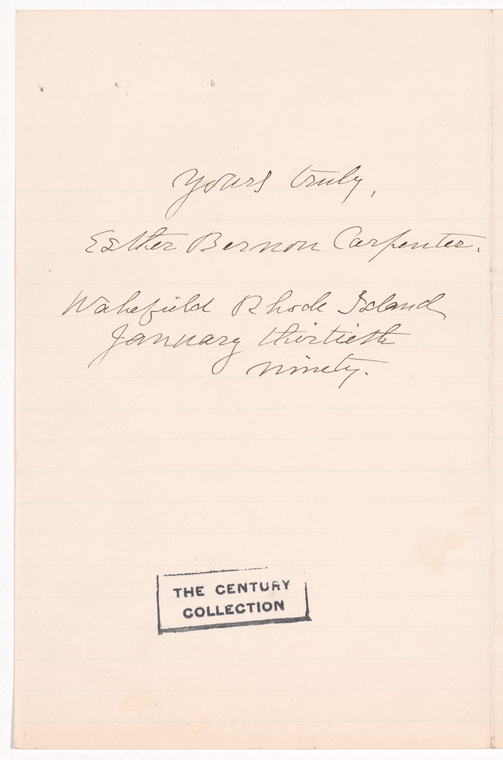 Yours truly,
Esther Bernon Carpenter.
Wakefield Rhode Island
January thirtieth
ninety.
THE CENTURY
COLLECTION